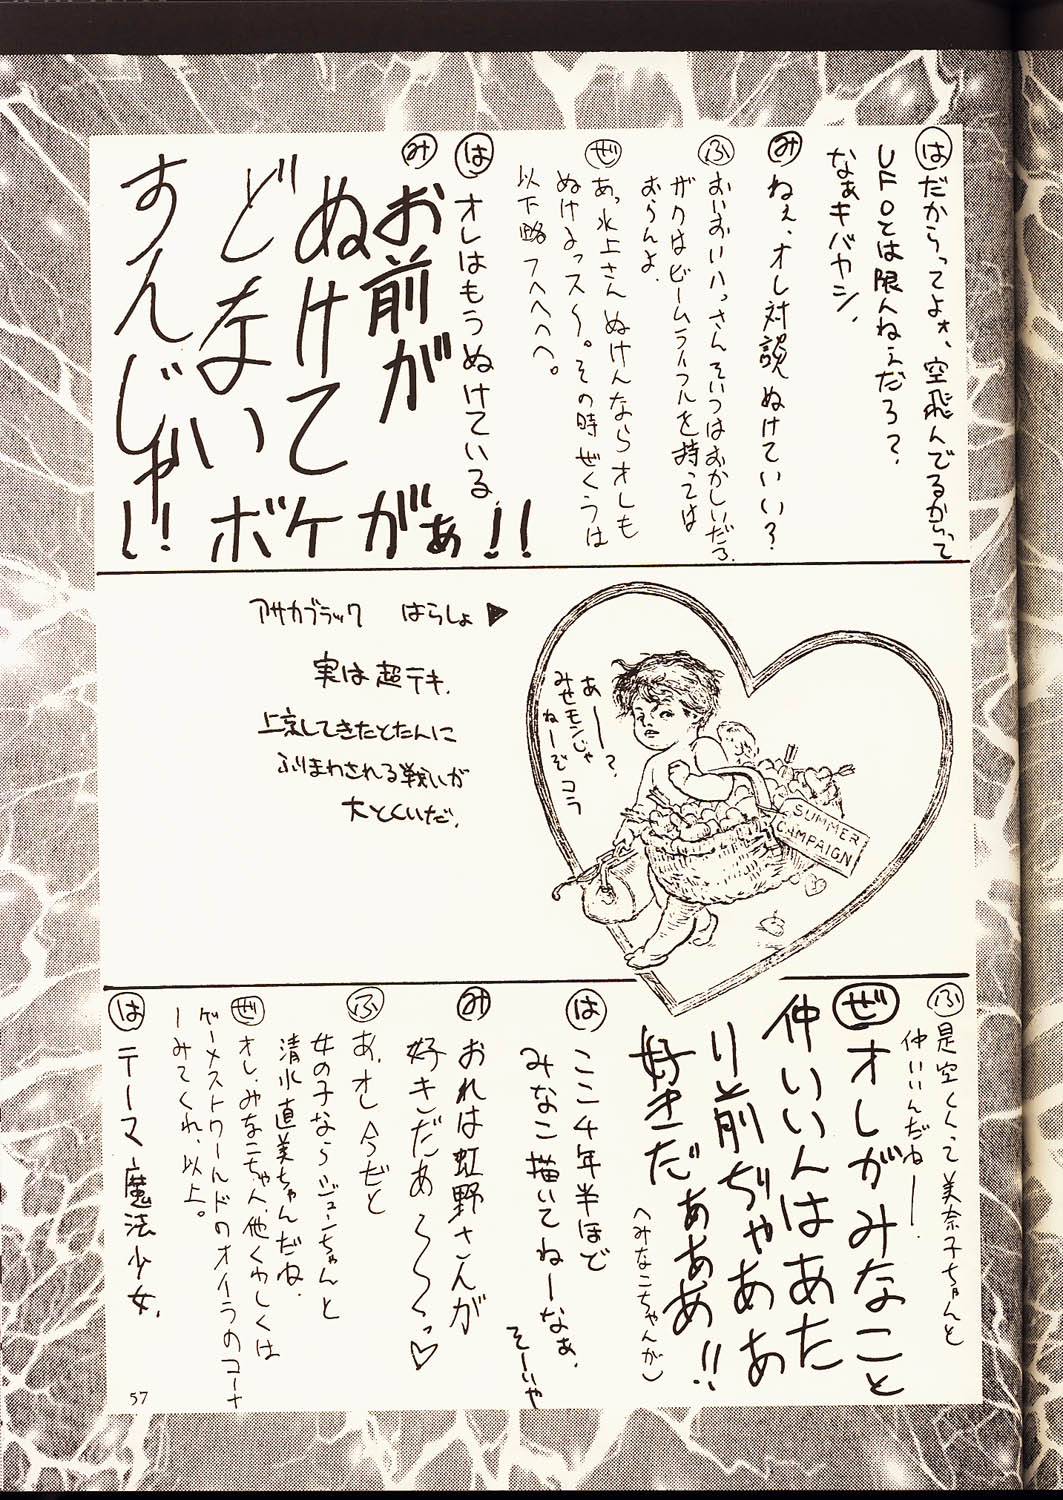 は だからってよォ、空飛んでるからって
UFOとは限んねぇだろ?
なぁキバヤシ、
み ねぇ、オレ対談ぬけていい?
ふ おいおいハっさんそいつはおかしいだろ、
ザクはビームライフルを持っては
おらんよ。
ぜ あっ水上さんぬけんならオレも
ぬけるっス〜。その時ぜくうは
以下略フヘヘヘヘ。
は オレはもうぬけている、
み お前が
ぬけて
どない
すんじゃ
い! ボケがぁ!!
アサカブラック はらしょ ▶
実は超テキ、
上京してきたとたんに
ふりまわされる戦いが
大とくいだ。
あ——?、
みせモンじゃ
ねーぞコラ
SUMMER
CAMPAIGN
ふ 是空くんて美奈子ちゃんと
仲いいんだね——。
ぜ オレがみなこと
仲いいんはあた
り前ぢゃああ
好きだぁああ!!
(みなこちゃんが)
は ここ4年半ほど
みなこ描いてねーなぁ、
そーいや
み おれは虹野さんが
好きだあ〜〜〜っ♡
ふ あ、オレ今だと
女の子ならジューンちゃんと
清水直美ちゃんだね、
ぜ オレ、みなこちゃん、他くゎしくは
ゲーメストワールドのオイラのコーナ
ーみてくれ、以上。
は テーマ魔法少女、
57